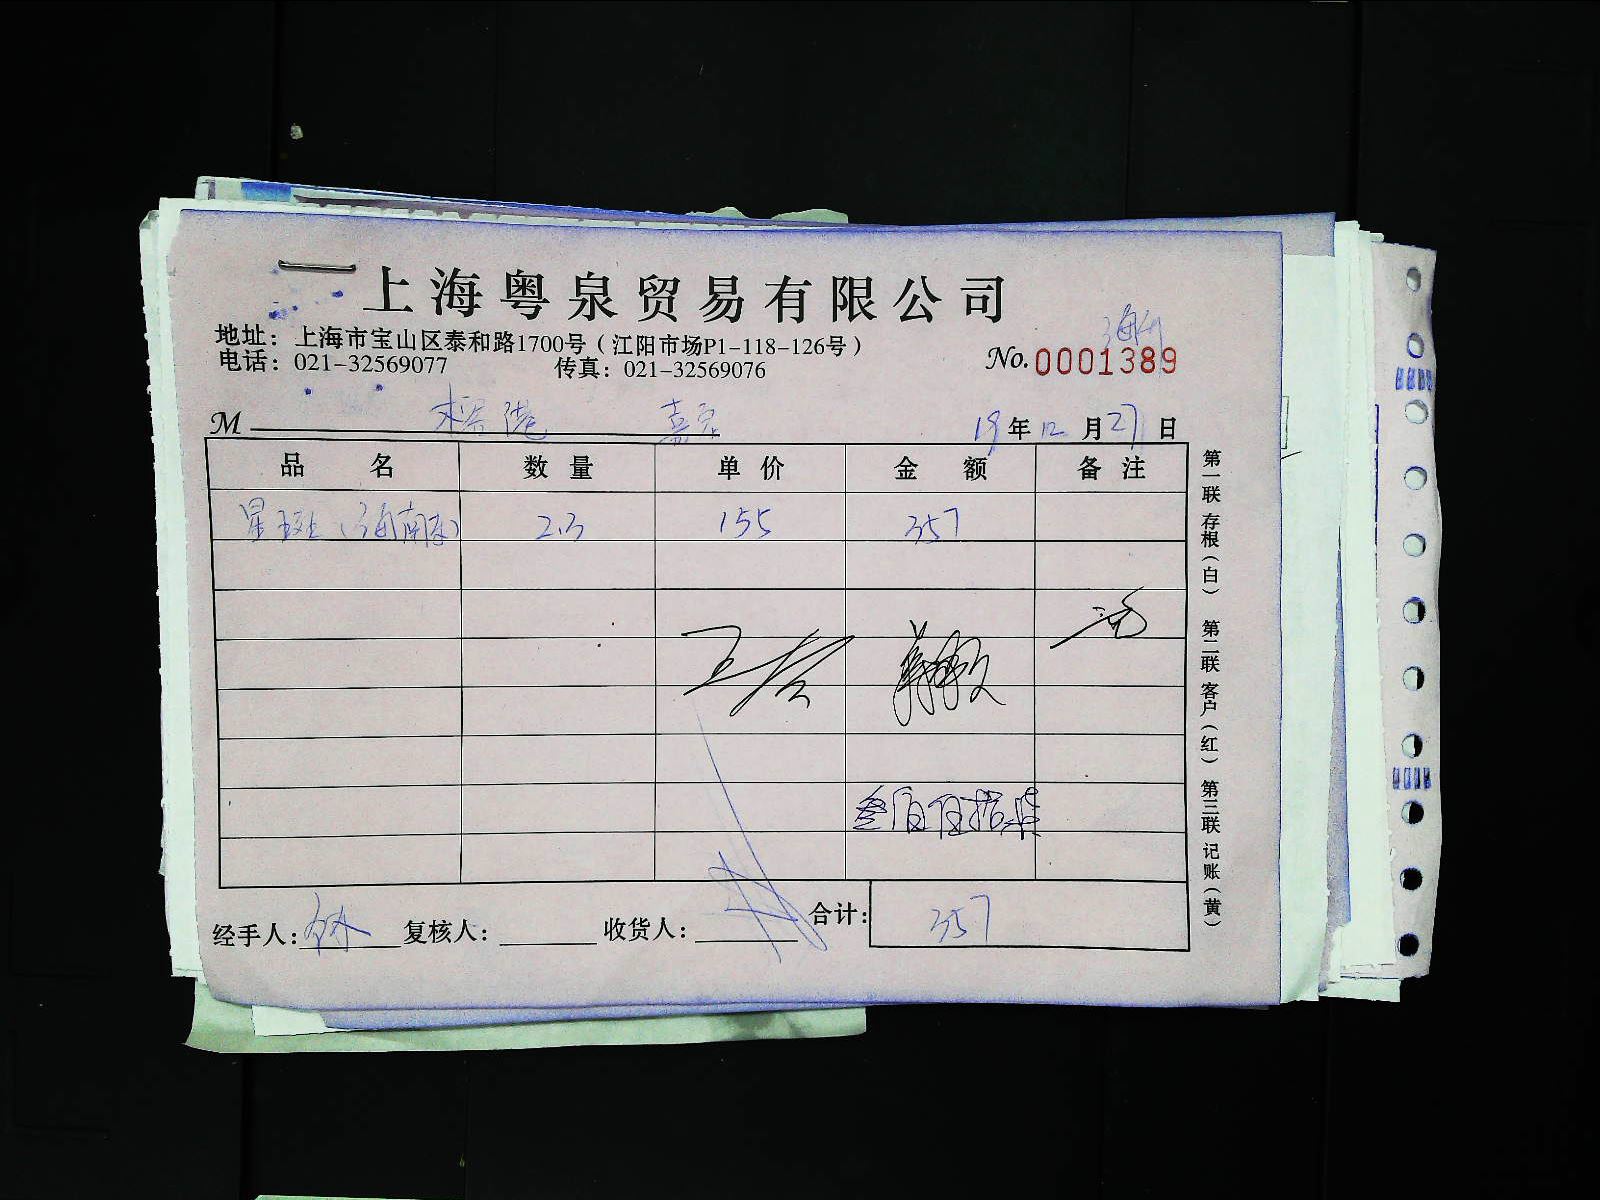 上海粤泉贸易有限公司
地址：上海市宝山区泰和路1700号（江阳市场P1-118-126号）
电话：021-32569077 传真：021-32569076
No.0001389
M 19年12月27日
品名 数量 单价 金额 备注
星斑（海南 2.3 155 357
叁佰伍拾
经手人： 复核人： 收货人： 合计： 357
第一联 存根（白） 第二联 客户（红） 第三联 记账（黄）